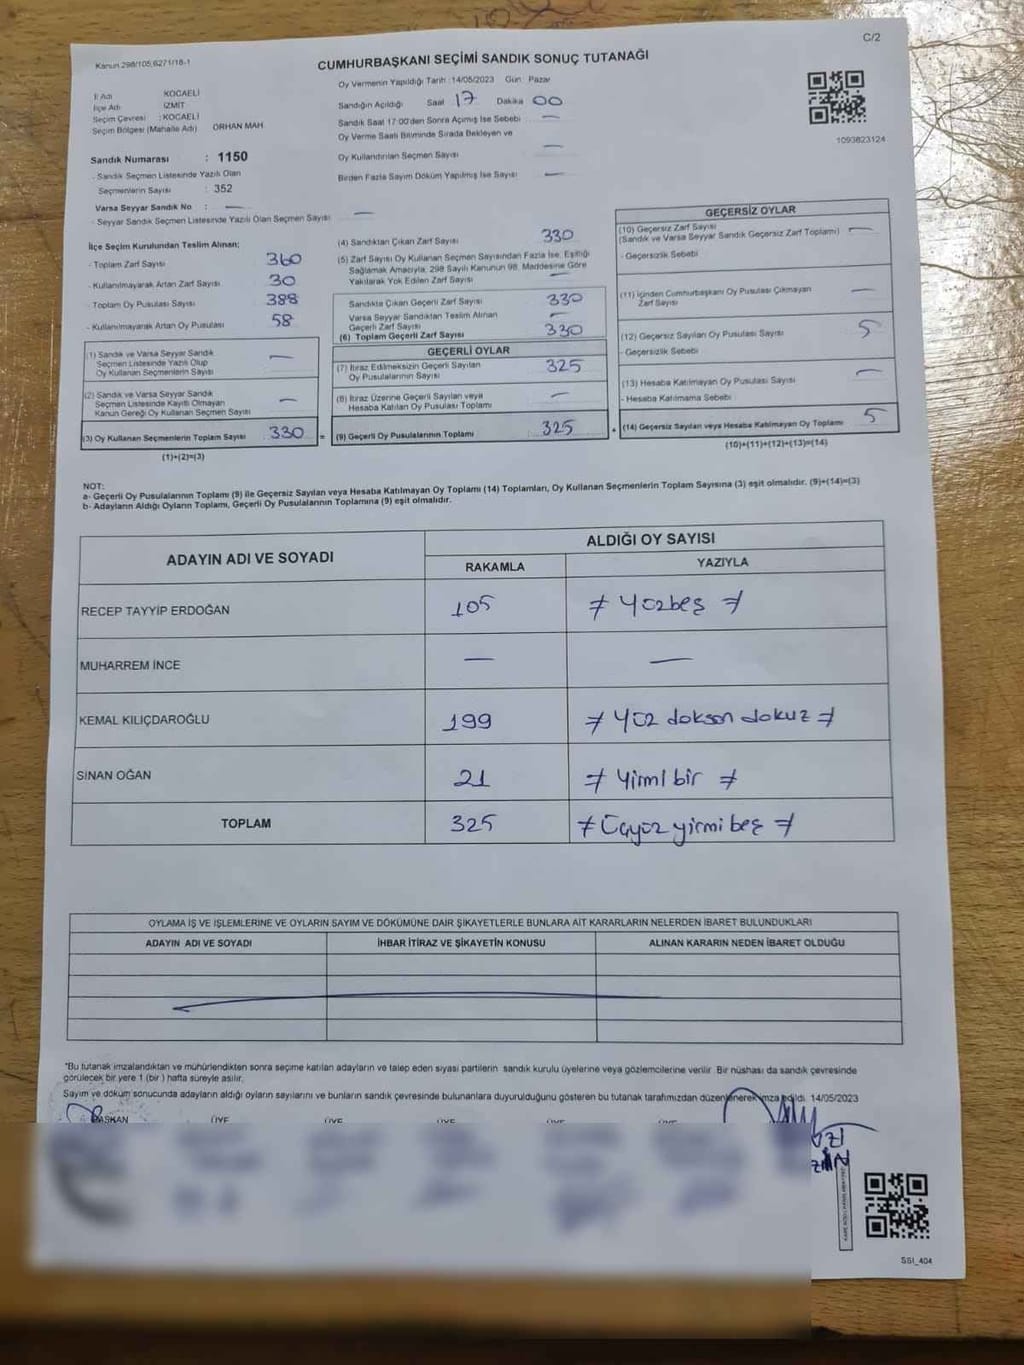 C/2
Kanun 298/105,6271/18-1
CUMHURBAŞKANI SEÇİMİ SANDIK SONUÇ TUTANAĞI
İl Adı KOCAELİ
İlçe Adı İZMİT
Seçim Çevresi : KOCAELİ
Seçim Bölgesi (Mahalle Adı) ORHAN MAH
Sandık Numarası : 1150
- Sandık Seçmen Listesinde Yazılı Olan
Seçmenlerin Sayısı : 352
Varsa Seyyar Sandık No : —
- Seyyar Sandık Seçmen Listesinde Yazılı Olan Seçmen Sayısı —
Oy Vermenin Yapıldığı Tarih : 14/05/2023 Gün : Pazar
Sandığın Açıldığı Saat 17 Dakika 00
Sandık Saat 17:00'den Sonra Açımış İse Sebebi —
Oy Verme Saati Bitiminde Sırada Bekleyen ve
Oy Kullandırılan Seçmen Sayısı —
Birden Fazla Sayım Döküm Yapılmış İse Sayısı —
1093823124
İlçe Seçim Kurulundan Teslim Alınan;
- Toplam Zarf Sayısı 360
- Kullanılmayarak Artan Zarf Sayısı 30
- Toplam Oy Pusulası Sayısı 388
- Kullanılmayarak Artan Oy Pusulası 58
(1) Sandık ve Varsa Seyyar Sandık
Seçmen Listesinde Yazılı Olup
Oy Kullanan Seçmenlerin Sayısı —
(2) Sandık ve Varsa Seyyar Sandık
Seçmen Listesinde Kayıtlı Olmayan
Kanun Gereği Oy Kullanan Seçmen Sayısı —
(3) Oy Kullanan Seçmenlerin Toplam Sayısı 330 =
(1)+(2)=(3)
(4) Sandıktan Çıkan Zarf Sayısı 330
(5) Zarf Sayısı Oy Kullanan Seçmen Sayısından Fazla İse, Eşitliği
Sağlamak Amacıyla, 298 Sayılı Kanunun 98. Maddesine Göre
Yakılarak Yok Edilen Zarf Sayısı —
Sandıkta Çıkan Geçerli Zarf Sayısı 330
Varsa Seyyar Sandıktan Teslim Alınan
Geçerli Zarf Sayısı —
(6) Toplam Geçerli Zarf Sayısı 330
GEÇERLİ OYLAR
(7) İtiraz Edilmeksizin Geçerli Sayılan
Oy Pusulalarının Sayısı 325
(8) İtiraz Üzerine Geçerli Sayılan veya
Hesaba Katılan Oy Pusulası Toplamı —
(9) Geçerli Oy Pusulalarının Toplamı 325 +
GEÇERSİZ OYLAR
(10) Geçersiz Zarf Sayısı
(Sandık ve Varsa Seyyar Sandık Geçersiz Zarf Toplamı) —
- Geçersizlik Sebebi
(11) İçinden Cumhurbaşkanı Oy Pusulası Çıkmayan
Zarf Sayısı —
(12) Geçersiz Sayılan Oy Pusulası Sayısı 5
- Geçersizlik Sebebi
(13) Hesaba Katılmayan Oy Pusulası Sayısı —
- Hesaba Katılmama Sebebi
(14) Geçersiz Sayılan veya Hesaba Katılmayan Oy Toplamı 5
(10)+(11)+(12)+(13)=(14)
NOT:
a- Geçerli Oy Pusulalarının Toplamı (9) ile Geçersiz Sayılan veya Hesaba Katılmayan Oy Toplamı (14) Toplamları, Oy Kullanan Seçmenlerin Toplam Sayısına (3) eşit olmalıdır. (9)+(14)=(3)
b- Adayların Aldığı Oyların Toplamı, Geçerli Oy Pusulalarının Toplamına (9) eşit olmalıdır.
ADAYIN ADI VE SOYADI ALDIĞI OY SAYISI
RAKAMLA YAZIYLA
RECEP TAYYİP ERDOĞAN 105 ≠ Yüzbeş ≠
MUHARREM İNCE — —
KEMAL KILIÇDAROĞLU 199 ≠ Yüz doksan dokuz ≠
SİNAN OĞAN 21 ≠ Yirmi bir ≠
TOPLAM 325 ≠ Üçyüz yirmi beş ≠
OYLAMA İŞ VE İŞLEMLERİNE VE OYLARIN SAYIM VE DÖKÜMÜNE DAİR ŞİKAYETLERLE BUNLARA AİT KARARLARIN NELERDEN İBARET BULUNDUKLARI
ADAYIN ADI VE SOYADI İHBAR İTİRAZ VE ŞİKAYETİN KONUSU ALINAN KARARIN NEDEN İBARET OLDUĞU
*Bu tutanak imzalandıktan ve mühürlendikten sonra seçime katılan adayların ve talep eden siyasi partilerin sandık kurulu üyelerine veya gözlemcilerine verilir. Bir nüshası da sandık çevresinde
görülecek bir yere 1 (bir) hafta süreyle asılır.
Sayım ve döküm sonucunda adayların aldığı oyların sayılarını ve bunların sandık çevresinde bulunanlara duyurulduğunu gösteren bu tutanak tarafımızdan düzenlenerek imza edildi. 14/05/2023
BAŞKAN ÜYE ÜYE ÜYE ÜYE ÜYE
SSI_404